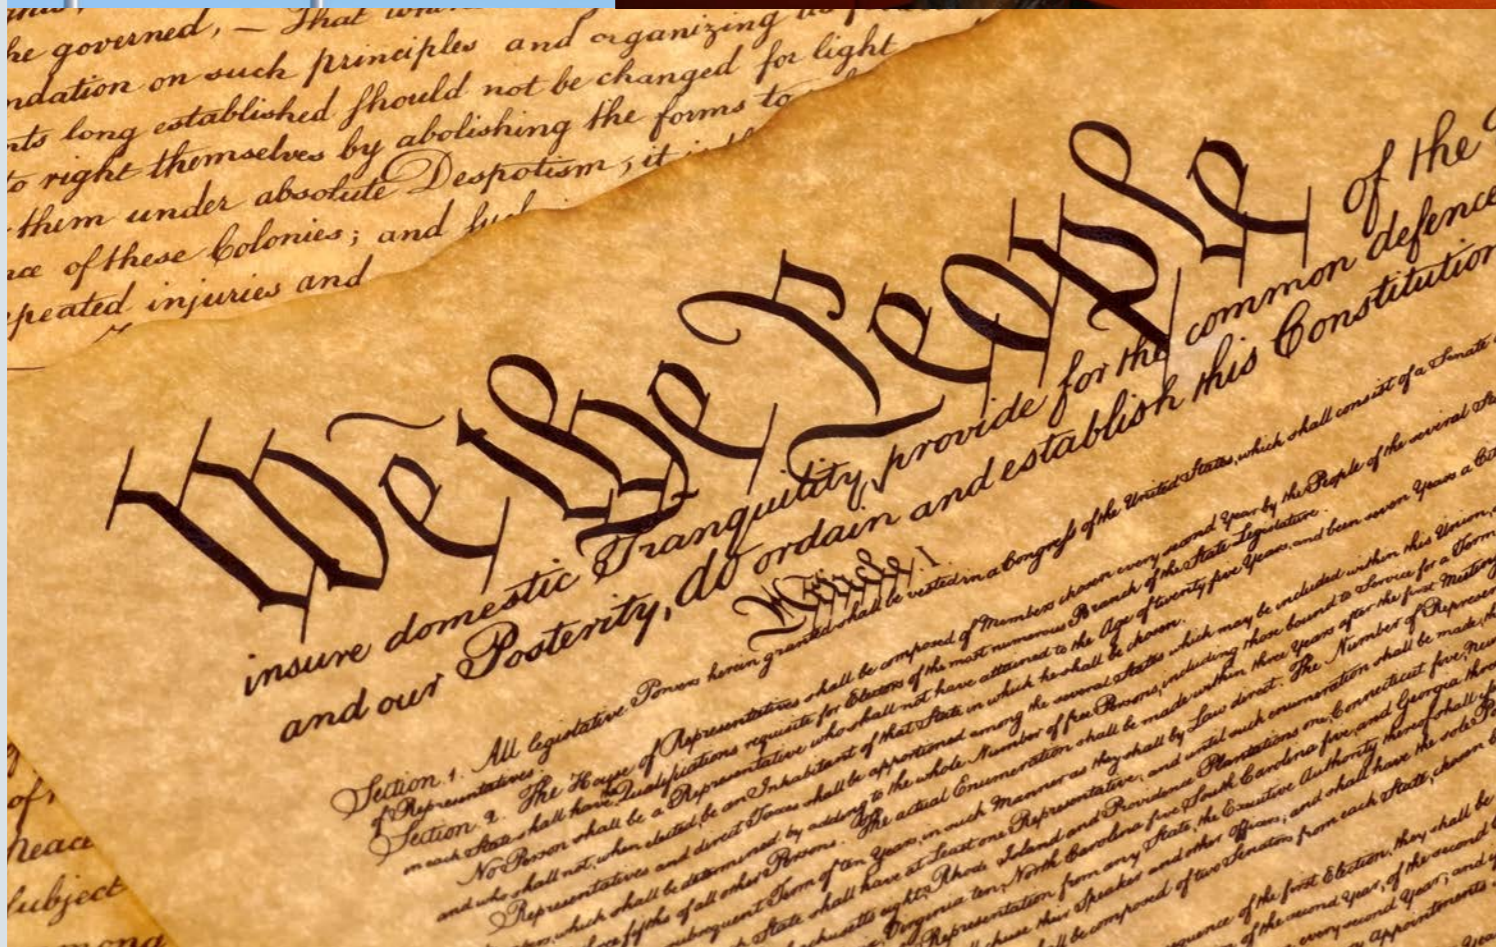 he governed, — That
ndation on such principles and organizing its
nts long established should not be changed for light
to right themselves by abolishing the forms to
them under absolute Despotism, it is
nce of these Colonies; and
peated injuries and
We the People of the
insure domestic Tranquility, provide for the common defence
and our Posterity, do ordain and establish this Constitution
Article. I.
Section. 1. All legislative Powers herein granted shall be vested in a Congress of the United States, which shall consist of a Senate
of Representatives.
Section. 2. The House of Representatives shall be composed of Members chosen every second Year by the People of the several
in each State shall have Qualifications requisite for Electors of the most numerous Branch of the State Legislature.
No Person shall be a Representative who shall not have attained to the Age of twenty five Years, and been seven Years a
and who shall not, when elected, be an Inhabitant of that State in which he shall be chosen.
Representatives and direct Taxes shall be apportioned among the several States which may be included within this Union,
which shall be determined by adding to the whole Number of free Persons, including those bound to Service for a Term
fifths of all other Persons. The actual Enumeration shall be made within three Years after the first Meeting
subsequent Term of ten Years, in such Manner as they shall by Law direct. The Number of
State shall have at Least one Representative; and until such enumeration shall be made,
eight, Rhode Island and Providence Plantations one, Connecticut five,
Virginia ten, North Carolina five, South Carolina five, and Georgia
Representation from any State, the Executive Authority thereof shall
chuse their Speaker and other Officers; and shall have the sole
shall be composed of two Senators from each State, chosen
of the first Election, they shall be
of the second Year, of the second
every second Year; and
Appointments
of
subject
among